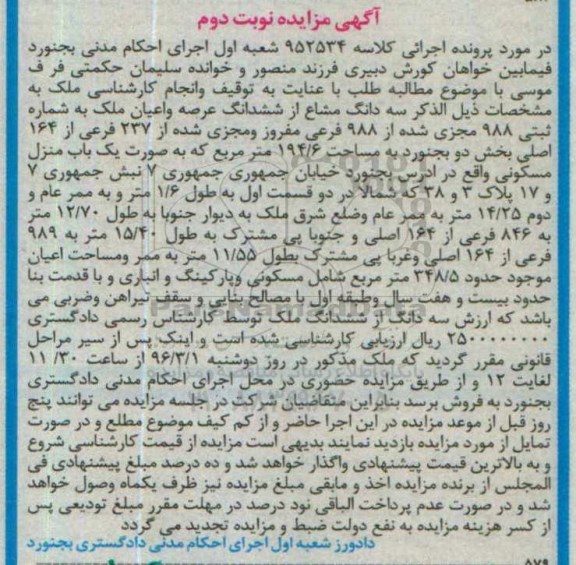 آگهی مزایده نوبت دوم
در مورد پرونده اجرائی کلاسه ۹۵۲۵۳۴ شعبه اول اجرای احکام مدنی بجنورد
فیمابین خواهان کورش دبیری فرزند منصور و خوانده سلیمان حکمتی فر ف
موسی با موضوع مطالبه طلب با عنایت به توقیف وانجام کارشناسی ملک به
مشخصات ذیل الذکر سه دانگ مشاع از ششدانگ عرصه واعیان ملک به شماره
ثبتی ۹۸۸ مجزی شده از ۹۸۸ فرعی مفروز ومجزی شده از ۲۳۷ فرعی از ۱۶۴
اصلی بخش دو بجنورد به مساحت ۱۹۴/۶ متر مربع که به صورت یک باب منزل
مسکونی واقع در ادرس بجنورد خیابان جمهوری جمهوری ۷ نبش جمهوری ۷
و ۱۷ پلاک ۳ و ۳۸ که شمالا در دو قسمت اول به طول ۱/۶ متر و به ممر عام و
دوم ۱۴/۲۵ متر به ممر عام وضلع شرق ملک به دیوار جنوبا به طول ۱۲/۷۰ متر
به ۸۴۶ فرعی از ۱۶۴ اصلی و جنوبا پی مشترک به طول ۱۵/۴۰ متر به ۹۸۹
فرعی از ۱۶۴ اصلی وغربا پی مشترک بطول ۱۱/۵۵ متر به ممر ومساحت اعیان
موجود حدود ۳۴۸/۵ متر مربع شامل مسکونی وپارکینگ و انباری و با قدمت بنا
حدود بیست و هفت سال وطبقه اول با مصالح بنایی و سقف تیراهن وضربی می
باشد که ارزش سه دانگ از ششدانگ ملک توسط کارشناس رسمی دادگستری
۲۵۰۰۰۰۰۰۰۰ ریال ارزیابی کارشناسی شده است و اینک پس از سیر مراحل
قانونی مقرر گردید که ملک مذکور در روز دوشنبه ۹۶/۳/۱ از ساعت ۳۰/ ۱۱
لغایت ۱۲ و از طریق مزایده حضوری در محل اجرای احکام مدنی دادگستری
بجنورد به فروش برسد بنابراین متقاضیان شرکت در جلسه مزایده می توانند پنج
روز قبل از موعد مزایده در این اجرا حاضر و از کم کیف موضوع مطلع و در صورت
تمایل از مورد مزایده بازدید نمایند بدیهی است مزایده از قیمت کارشناسی شروع
و به بالاترین قیمت پیشنهادی واگذار خواهد شد و ده درصد مبلغ پیشنهادی فی
المجلس از برنده مزایده اخذ و مابقی مبلغ مزایده نیز ظرف یکماه وصول خواهد
شد و در صورت عدم پرداخت الباقی نود درصد در مهلت مقرر مبلغ تودیعی پس
از کسر هزینه مزایده به نفع دولت ضبط و مزایده تجدید می گردد
دادورز شعبه اول اجرای احکام مدنی دادگستری بجنورد
۵۷۹